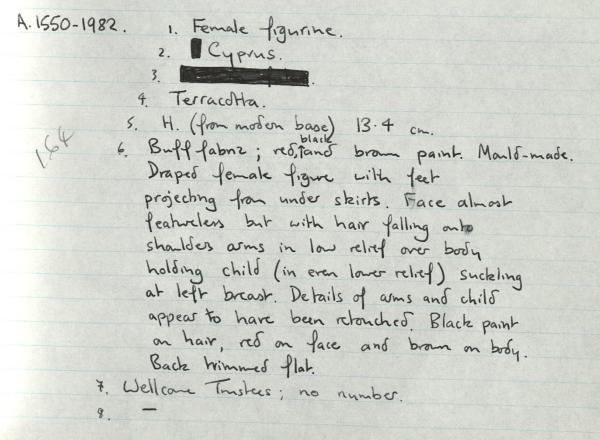 A.1550-1982. 1. Female figurine.
2. Cyprus.
3.
4. Terracotta.
5. H. (from modern base) 13.4 cm.
164
6. Buff fabric; red, black and brown paint. Mould-made.
Draped female figure with feet
projecting from under skirts. Face almost
featureless but with hair falling onto
shoulders arms in low relief over body
holding child (in even lower relief) suckling
at left breast. Details of arms and child
appear to have been retouched. Black paint
on hair, red on face and brown on body.
Back trimmed flat.
7. Wellcome Trustees; no number.
8. —